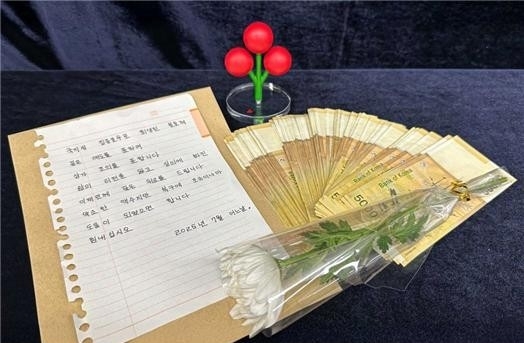 국지성 집중호우로 희생된 분들께
깊은 애도를 표하며
삼가 조의를 표합니다.
삶의 터전을 잃고 실의에 빠진
이재민께 깊은 위로를 드립니다.
약소한 액수지만 복구에 조금이나마
도움이 되었으면 합니다.
힘내십시오.
2025년. 7월 어느날.
Bank of Korea
Bank of Korea
50